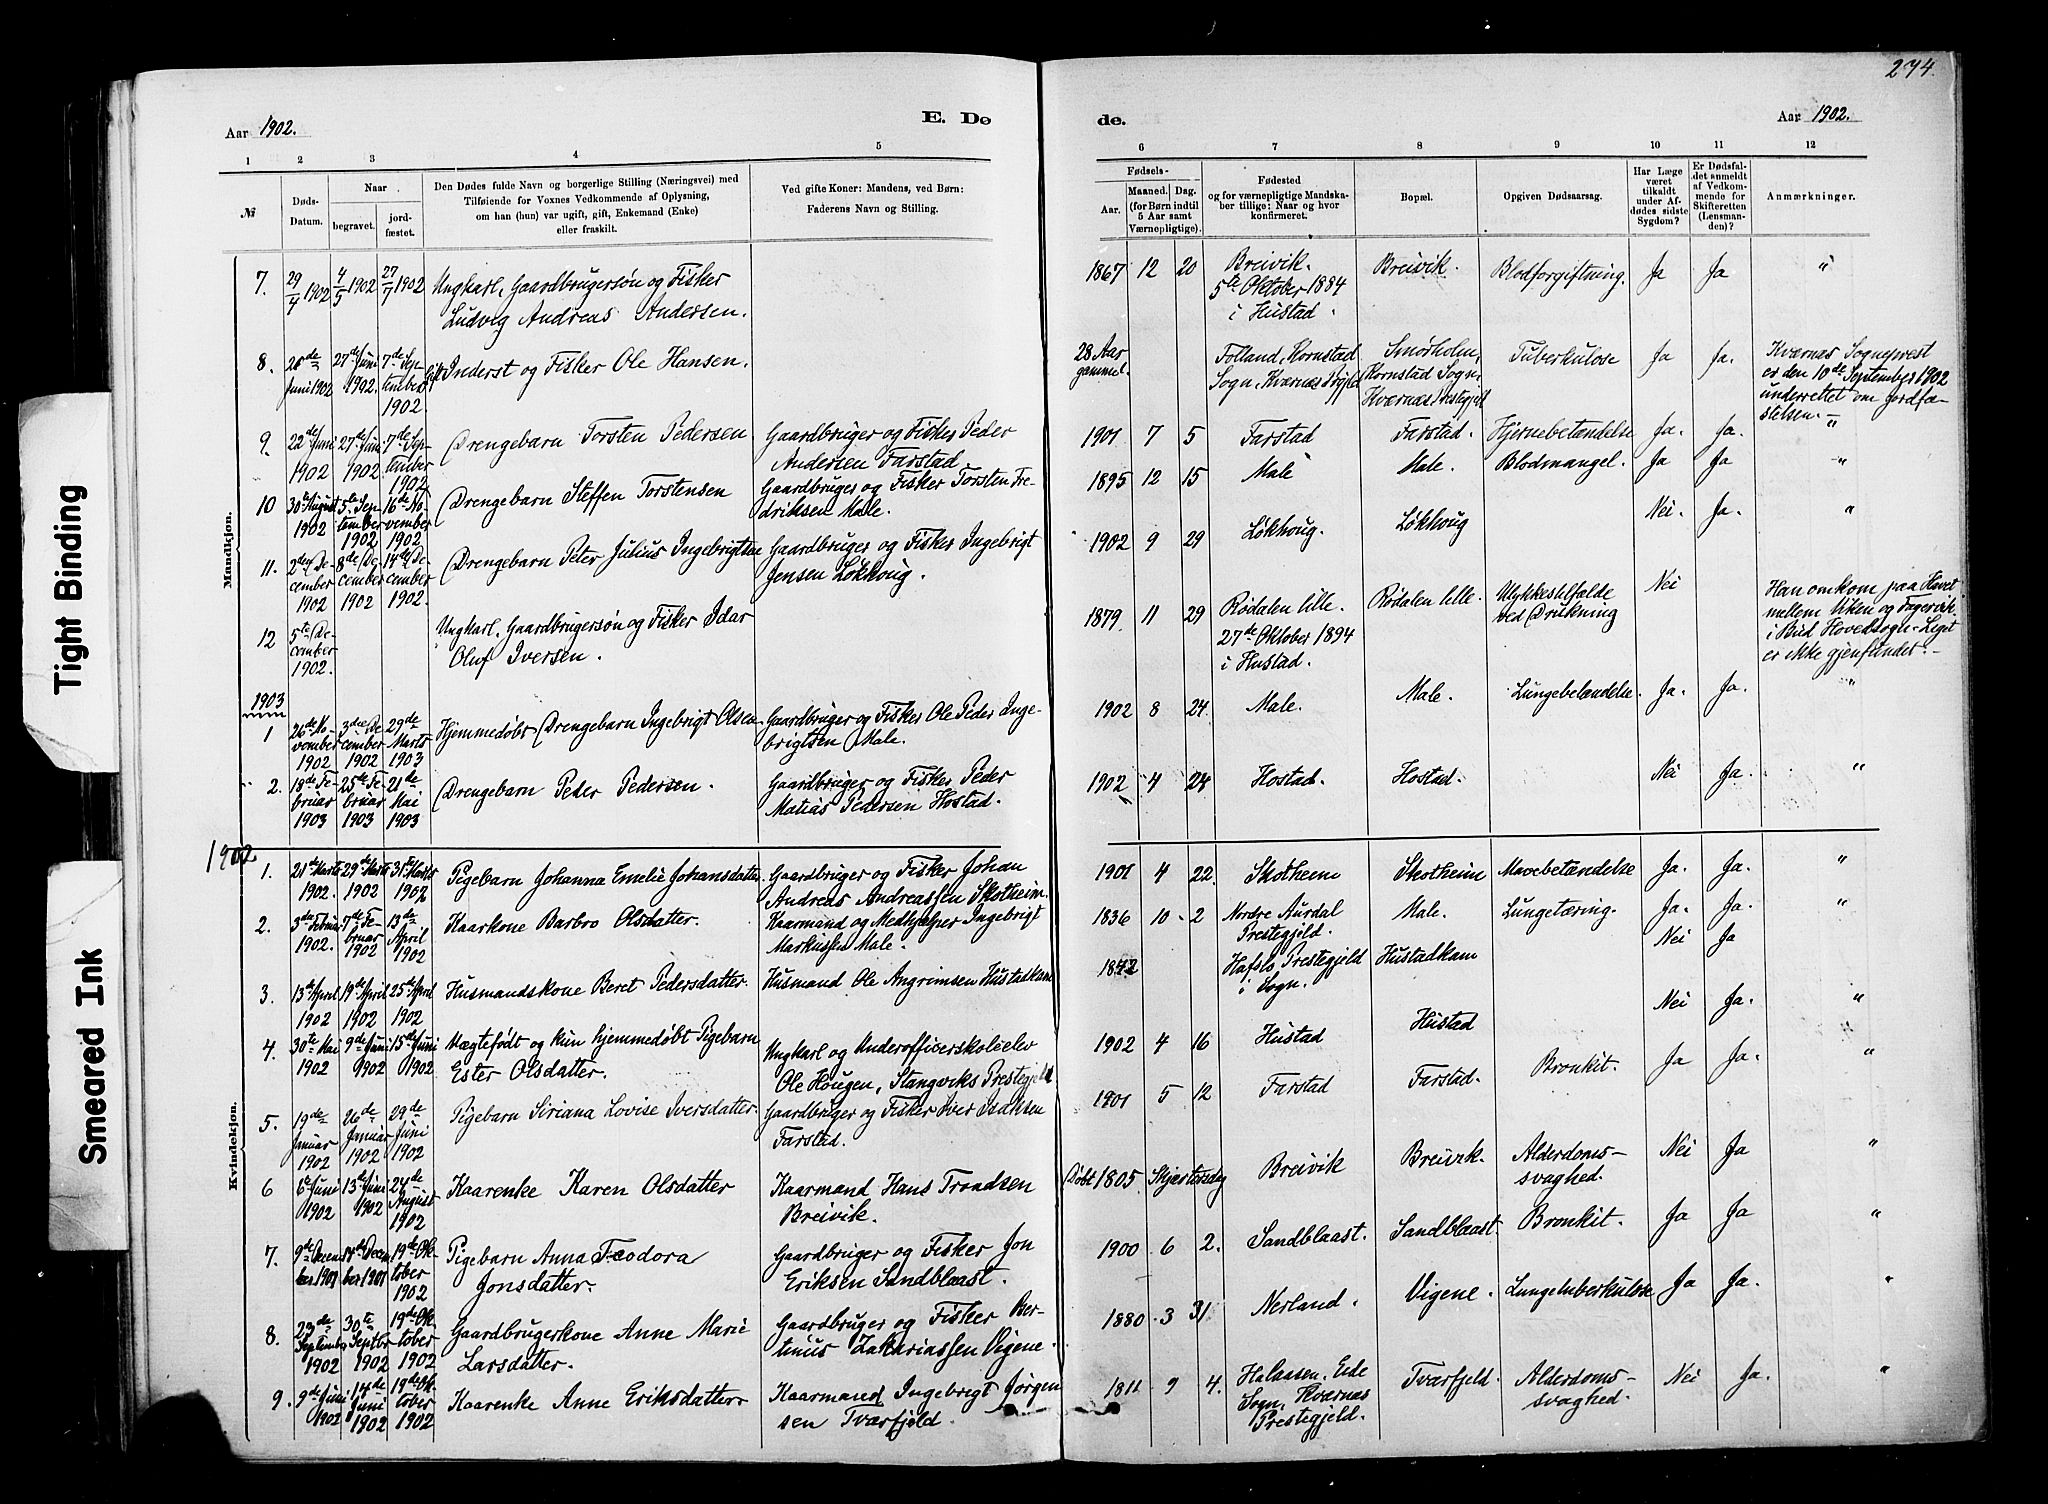 274.
Aar 1902.
E. Dø
de.
Aar 1902.
1 2 3 4 5
6 7 8 9 10 11 12
№
Døds-
Datum.
Naar
begravet.
jord-
fæstet.
Den Dødes fulde Navn og borgerlige Stilling (Næringsvei) med
Tilføiende for Voxnes Vedkommende af Oplysning,
om han (hun) var ugift, gift, Enkemand (Enke)
eller fraskilt.
Ved gifte Koner: Mandens, ved Børn:
Faderens Navn og Stilling.
Fødsels-
Aar.
Maaned. Dag.
(for Børn indtil
5 Aar samt
Værnepligtige).
Fødested
og for værnepligtige Mandska-
ber tillige: Naar og hvor
konfirmeret.
Bopæl.
Opgiven Dødsaarsag.
Har Læge
været
tilkaldt
under Af-
dødes sidste
Sygdom?
Er Dødsfal-
det anmeldt
af Vedkom-
mende for
Skifteretten
(Lensman-
den)?
Anmærkninger.
Mandkjøn.
7. 29/4 1902 4/5 1902 27/7 1902 Ungkarl, Gaardbrugersøn og Fisker
Ludvig Andreas Andersen.
1867 12 20 Breivik. Breivik. Blodforgiftning. Ja Ja "
5te Oktober 1884
i Hustad.
8. 20de Juni 1902 27de Juni 1902. 7de September 1902. Inderst og Fisker Ole Hansen.
28 Aar Folland, Kornstad Smørholm, Tuberkulose Ja Ja. Kvernæs Sogneprest
gammel. Sogn, Kværnæs Prgjeld Kornstad Sogn, er den 10de September 1902
Kværnæs Prestegjeld underrettet om Jordfæ-
stelsen.
9. 22de Juni 1902 27de Juni 1902 7de September 1902 Drengebarn Torsten Pedersen Gaardbruger og Fisker Peder
Andersen Farstad
1901 7 5 Farstad Farstad. Hjernebetændelse Ja. Ja. "
10 30te August 1902 5te September 1902 16de November 1902 Drengebarn Steffen Torstensen Gaardbruger og Fisker Torsten Fre-
driksen Male.
1895 12 15 Male Male. Blodmangel. Ja Ja "
11. 2den December 1902 8de December 1902 14de December 1902. Drengebarn Peter Julius Ingebrigtsen Gaardbruger og Fisker Ingebrigt
Jensen Løkhoug.
1902 9 29 Løkhoug. Løkhoug Nei. Ja. "
12 5te December 1902. Ungkarl, Gaardbrugersøn og Fisker Idar
Oluf Iversen.
1879. 11 29 Rødalen lille. Rødalen lille. Ulykkestilfælde Nei Han omkom paa Havet
27de Oktober 1894 ved Drukning mellem Uken og Fagervik
i Hustad. i Bud Hovedsogn. Liget
er ikke gjenfundet.
1903
1 26de November 1902 3die December 1902 29de Marts 1903 Hjemmedøbt Drengebarn Ingebrigt Olsen Gaardbruger og Fisker Ole Peder Inge-
brigtsen Male.
1902 8 24. Male. Male. Lungebetændelse. Ja. Ja. "
2. 18de Februar 1903 25de Februar 1903 21de Mai 1903 Drengebarn Peder Pedersen. Gaardbruger og Fisker Peder
Matias Pedersen Hostad.
1902 4 28 Hostad. Hostad. Nei Ja. "
1902
Kvindekjøn.
1. 21de Marts 1902. 29de Marts 1902 31te Marts 1902 Pigebarn Johanna Emelie Johansdatter Gaardbruger og Fisker Johan
Andreas Andreassen Skotheim.
1901 4 22. Skotheim Skotheim Mavebetændelse Ja. Ja. "
2. 3die Februar 1902. 7de Februar 1902 13de April 1902 Kaarkone Barbro Olsdatter. Kaarmand og Medhjælper Ingebrigt
Markussen Male.
1836 10 2 Nordre Aurdal Male. Lungetæring. Ja. Ja. "
Prestegjeld.
3. 13de April 1902 19de April 1902 25de April 1902 Husmandskone Beret Pedersdatter. Husmand Ole Angrimsen Hustadkam
1842 Hafslo Prestegjeld Hustadkam Nei Ja
i Sogn.
4. 30te Mai 1902 9de Juni 1902 15de Juni 1902 Uægtefødt og kun hjemmedøbt Pigebarn Ungkarl og Underofficerskoleelev
Ester Olsdatter. Ole Hougen, Stangviks Prestegjeld
1902 4 16 Hustad Hustad Nei Ja. "
5. 19de Januar 1902 26de Januar 1902 29de Juni 1902 Pigebarn Siriana Lovise Iversdatter. Gaardbruger og Fisker Iver Isaksen
Farstad.
1901 5 12 Farstad Farstad. Bronkit. Ja Ja. "
6 6te Juni 1902 13de Juni 1902 24de August 1902 Kaarenke Karen Olsdatter Kaarmand Hans Trondsen
Breivik.
Døbt 1805 Skjærtorsdag Breivik Breivik. Alderdoms- Nei Ja "
svaghed.
7. 9de December 1901 14de December 1901 19de Oktober 1902 Pigebarn Anna Teodora Gaardbruger og Fisker Jon
Jonsdatter. Eriksen Sandblaast.
1900 6 2. Sandblaast. Sandblaast. Bronkit. Ja Ja "
8. 23de September 1902 30te Septbr 1902 19de Oktober 1902 Gaardbrugerkone Anne Marie Gaardbruger og Fisker Ber-
Larsdatter. tinus Zakariassen Vigene.
1880 3 31 Nerland. Vigene. Lungetuberkulose Ja Ja. "
9. 9de Juni 1902 14de Juni 1902 19de Oktober 1902 Kaarenke Anne Eriksdatter Kaarmand Ingebrigt Jørgen
sen Tværfjeld.
1811 9 4. Helassen, Eide Tværfjeld. Alderdoms- Nei Ja. "
Sogn, Kværnæs svaghed.
Prestegjeld.
Tight Binding
Smeared Ink